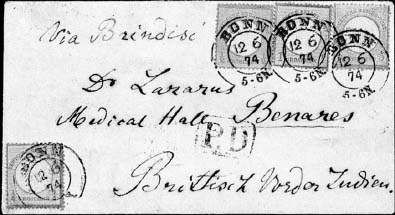 BONN
12 6
74
5-6N.
BONN
12 6
74
5-6N.
BONN
12 6
74
5-6N.
Via Brindisi
Dr Lazarus
Medical Hall Benares
P.D
Brittisch Vorder Indien.
BONN
12 6
74